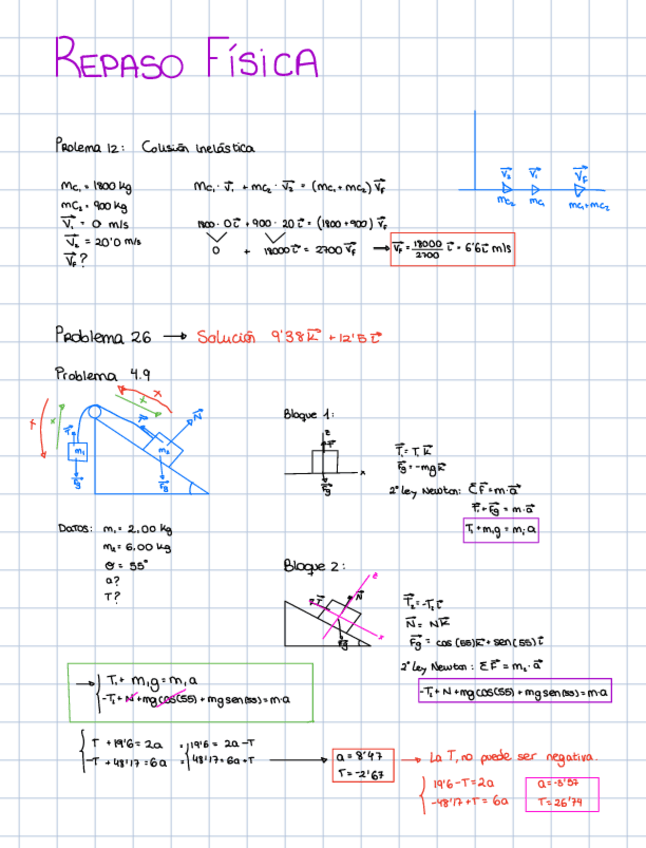 REPASO FÍSICA
Prolema 12: Colisión Inelástica
mc₁ = 1800 kg
mc₂ = 900 kg
V₁ = 0 m/s
V₂ = 20'0 m/s
V_F?
mc₁ · V₁ + mc₂ · V₂ = (mc₁ + mc₂) V_F
1800 · 0 i + 900 · 20 i = (1800 + 900) V_F
0 + 18000 i = 2700 V_F → V_F = 18000/2700 i = 6'6 i m/s
V₂ V₁ V_F
mc₂ mc₁ mc₁+mc₂
Problema 26 → Solución 9'38 k + 12'5 i
Problema 4.9
x x
x x
N
m₁ m₂
Fg Fg
Datos: m₁ = 2,00 kg
m₂ = 6,00 kg
θ = 55°
a?
T?
Bloque 1:
z
x
Fg
T₁ = T₁ k
Fg = -mg k
2ª Ley Newton: ΣF = m · a
T₁ + Fg = m · a
T₁ + m₁g = m₁ · a
Bloque 2:
z
T N
x
Fg
T₂ = -T₂ i
N = N k
Fg = cos (55) k + sen (55) i
2ª Ley Newton: ΣF = m₂ · a
-T₂ + N + mg cos(55) + mg sen(55) = m · a
→ { T₁ + m₁g = m₁a
-T₂ + N + mg cos(55) + mg sen(55) = m · a
{ T + 19'6 = 2a = { 19'6 = 2a - T
-T + 48'17 = 6a = 48'17 = 6a + T
→ a = 8'47
T = -2'67
→ La T, no puede ser negativa.
{ 19'6 - T = 2a
-48'17 + T = 6a
a = -3'57
T = 26'74